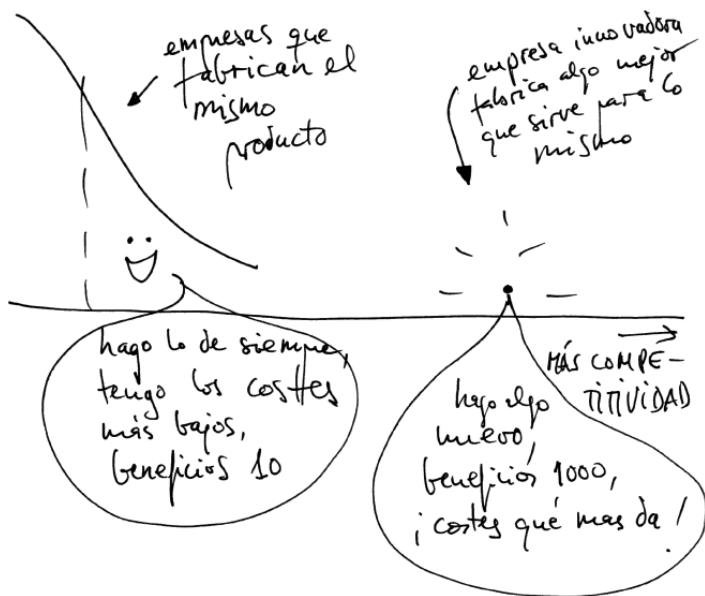 empresas que
fabrican el
mismo
producto
empresa innovadora
fabrica algo mejor
que sirve para lo
mismo
hago lo de siempre,
tengo los costes
más bajos,
beneficios 10
MÁS COMPE-
TITIVIDAD
hago algo
nuevo,
beneficios 1000,
¡costes qué mas da!